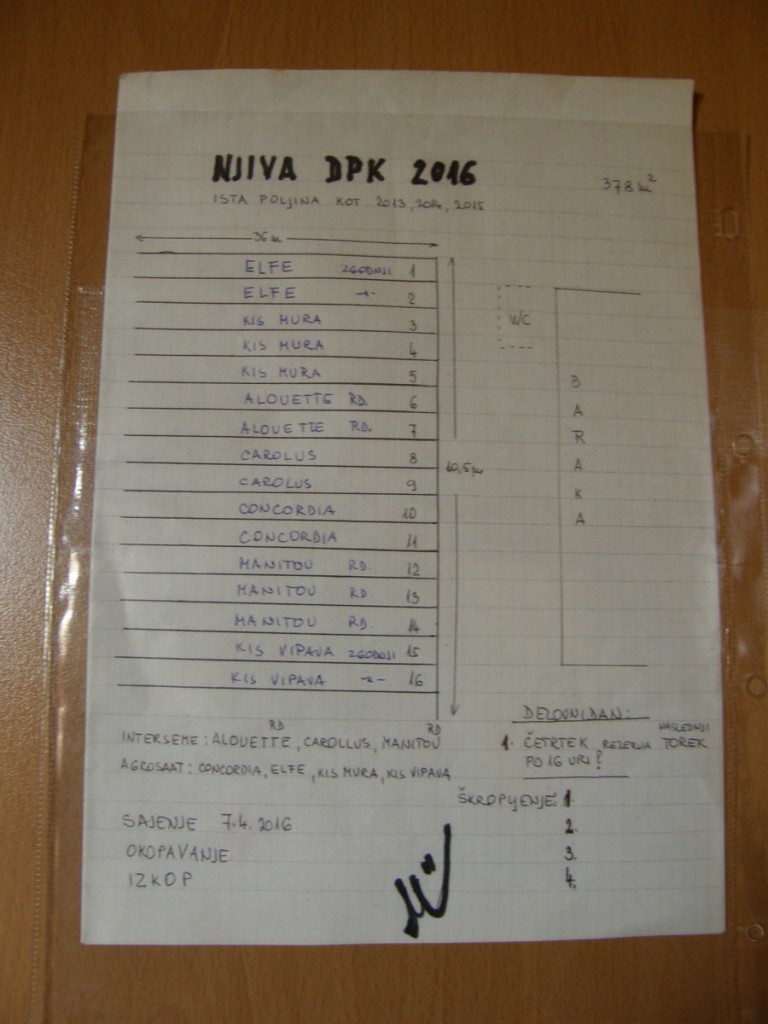 NJIVA DPK 2016
378 m²
ISTA POLJINA KOT 2013, 2014, 2015
36 m
ELFE ZGODNJI 1
ELFE -"- 2
KIS MURA 3
KIS MURA 4
KIS MURA 5
ALOUETTE RD. 6
ALOUETTE RD. 7
CAROLUS 8
CAROLUS 9
CONCORDIA 10
CONCORDIA 11
MANITOU RD. 12
MANITOU RD. 13
MANITOU RD. 14
KIS VIPAVA ZGODNJI 15
KIS VIPAVA -"- 16
10,5 m
WC
BARAKA
RD RD
INTERSEME: ALOUETTE, CAROLLUS, MANITOU
AGROSAAT: CONCORDIA, ELFE, KIS MURA, KIS VIPAVA
DELOVNI DAN:
NASLEDNJI
1. ČETRTEK REZERVA TOREK
PO 16 URI?
ŠKROPLJENJE: 1.
2.
3.
4.
SAJENJE 7.4.2016
OKOPAVANJE
IZKOP